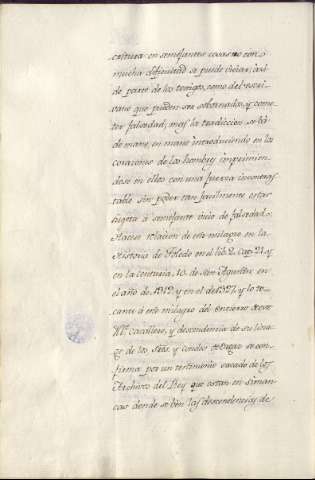 critura en semejantes cosas no con
mucha dificultad se puede viciar, assi
de parte de los testigos, como del escri-
vano que pueden ser sobornados, y come-
ter falsedad; mas la tradicion se vá
de mano, en mano introduciendo en los
corazones de los hombres imprimien-
dose en ellos con una fuerza incontras-
table sin poder tan facilmente estar
sugeta á semejante vicio de falsedad.
Hacen relacion de este milagro en la
Historia de Toledo en el lib. 2. cap. 21. y
en la centuria. 10. de San Agustin en
el año de 1312. y en el de 1327. y lo to-
cante á este milagro del entierro
Caballero, y descendencia de su lina-
ge de los
firma por un testimonio sacado de los
Archivos del Rey que estan en Siman-
cas donde se ven las descendencias de